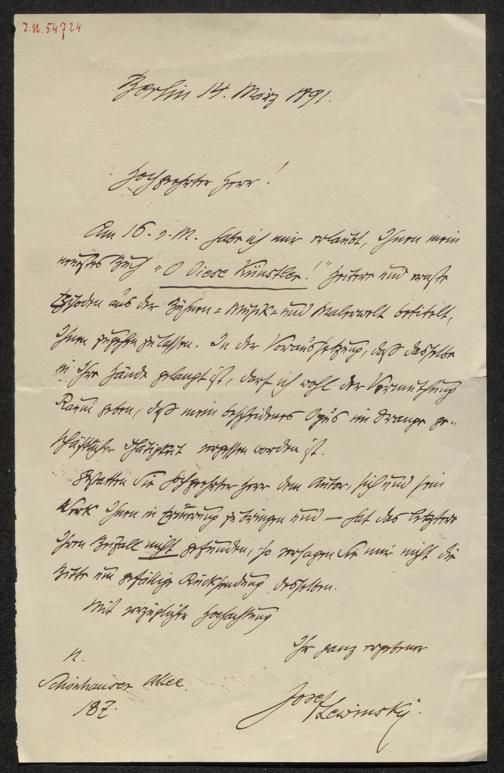 J.N. 54724
Berlin 14. März 1891.
Hochgeehrter Herr!
Am 16. v. M. habe ich mir erlaubt, Ihnen mein
neuestes Buch „O diese Künstler!" heitere und ernste
Episoden aus der Bühnen- Musik- und Malerwelt betitelt,
Ihnen zugehen zu lassen. In der Voraussetzung, daß dasselbe
in Ihre Hände gelangt ist, darf ich wohl der Vermuthung
Raum geben, daß mein bescheidenes Opus im Drange ge-
schäftlicher Thätigkeit vergessen worden ist.
Gestatten Sie hochgeehrter Herr dem Autor, sich und sein
Werk Ihnen in Erinnerung zu bringen und — hat das Letztere
Ihren Beifall nicht gefunden, so versagen Sie mir nicht die
Bitte um gefällige Rücksendung desselben.
Mit vorzüglicher Hochachtung
Ihr ganz ergebener
Josef Lewinsky.
N.
Schönhauser Allee
187.